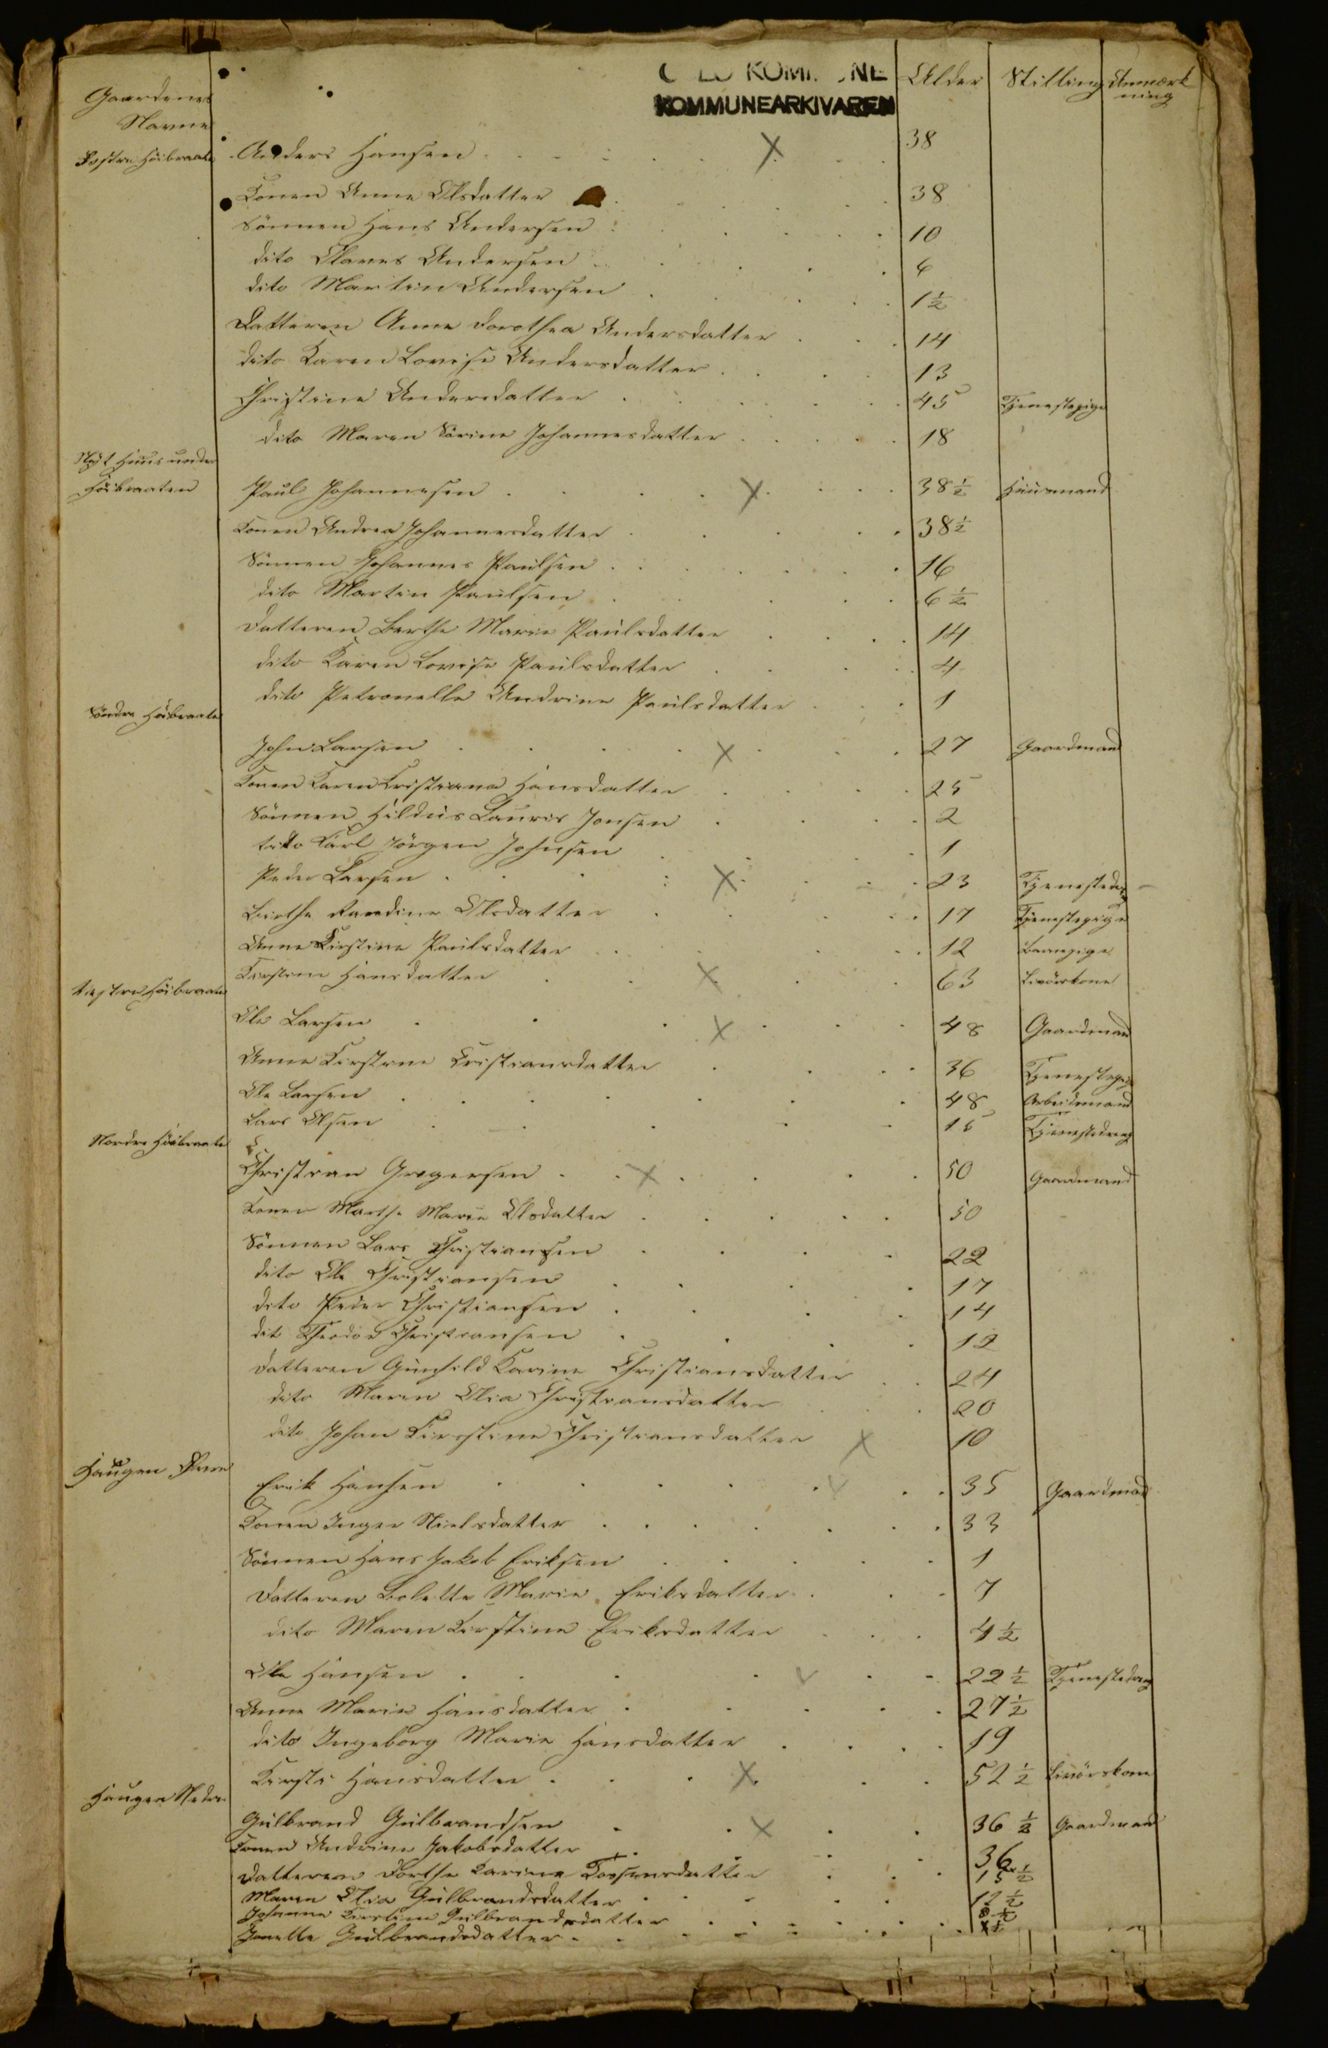 O LO KOM NE
KOMMUNEARKIVAREN
Gaardenes Navne Alder Stilling Anmærkning
Østre Höibraate Anders Hansen 38
Konen Anne Olsdatter 38
Sönnen Hans Andersen 10
dito Olaves Andersen 6
dito Martin Andersen 1½
Datteren Anne Dorothea Andersdatter 14
dito Karen Lovise Andersdatter 13
Christine Andersdatter 45 Tjenestepige
dito Maren Sörine Johannesdatter 18
Nyt Huus under
Höibraaten Paul Johannesen 38½ Huusmand
Konen Andrea Johannesdatter 38½
Sönnen Johannes Paulsen 16
dito Martin Paulsen 6½
Datteren Berthe Marie Paulsdatter 14
dito Karen Lovise Paulsdatter 4
dito Petronelle Andrine Paulsdatter 1
Söndre Höibraate
John Larsen 27 Gaardmand
Konen Karen Kristiana Hansdatter 25
Sönnen Hildus Lauris Jonsen 2
dito Karl Jörgen Johnsen 1
Peder Larsen 23 Tjenestedreng
Berthe Randine Olsdatter 17 Tjenestepige
Anne Kirstine Paulsdatter 12 Barnepige
Kirsten Hansdatter 63 Livörskone
Vestre Höibraate
Ole Larsen 48 Gaardmand
Anne Kirstine Cristiansdatter 36 Tjenestepige
Ole Larsen 48 Arbeidsmand
Lars Olsen 15 Tjenestedreng
Nordre Höibraate
Christian Gregersen 50 Gaardmand
Konen Marthe Marie Olsdatter 50
Sönnen Lars Christiansen 22
dito Ole Christiansen 17
dito Peder Christiansen 14
dit Theodor Christiansen 12
Datteren Gunhild Karine Christiansdatter 24
dito Maren Olia Christiansdatter 20
dito Johan Kirstine Christiansdatter 10
Haugen Övre
Erik Hansen 35 Gaardmand
Konen Inger Nielsdatter 33
Sönnen Hans Jakob Eriksen 1
Datteren Bolette Marie Eriksdatter 7
dito Maren Kirstine Eriksdatter 4½
Ole Hansen 22½ Tjenestedreng
Anne Marie Hansdatter 27½
dito Ingeborg Marie Hansdatter 19
Kirsti Hansdatter 52½ Livörskone
Haugen Nedre
Gulbrand Gulbrandsen 36½ Gaardmand
Konen Andrine Jakobsdatter 36
Datteren Dorthe Karine 15½
Maren Olia Gulbrandsdatter 12½
Johanne Kirstine Gulbrandsdatter 8½
Janette Gulbrandsdatter